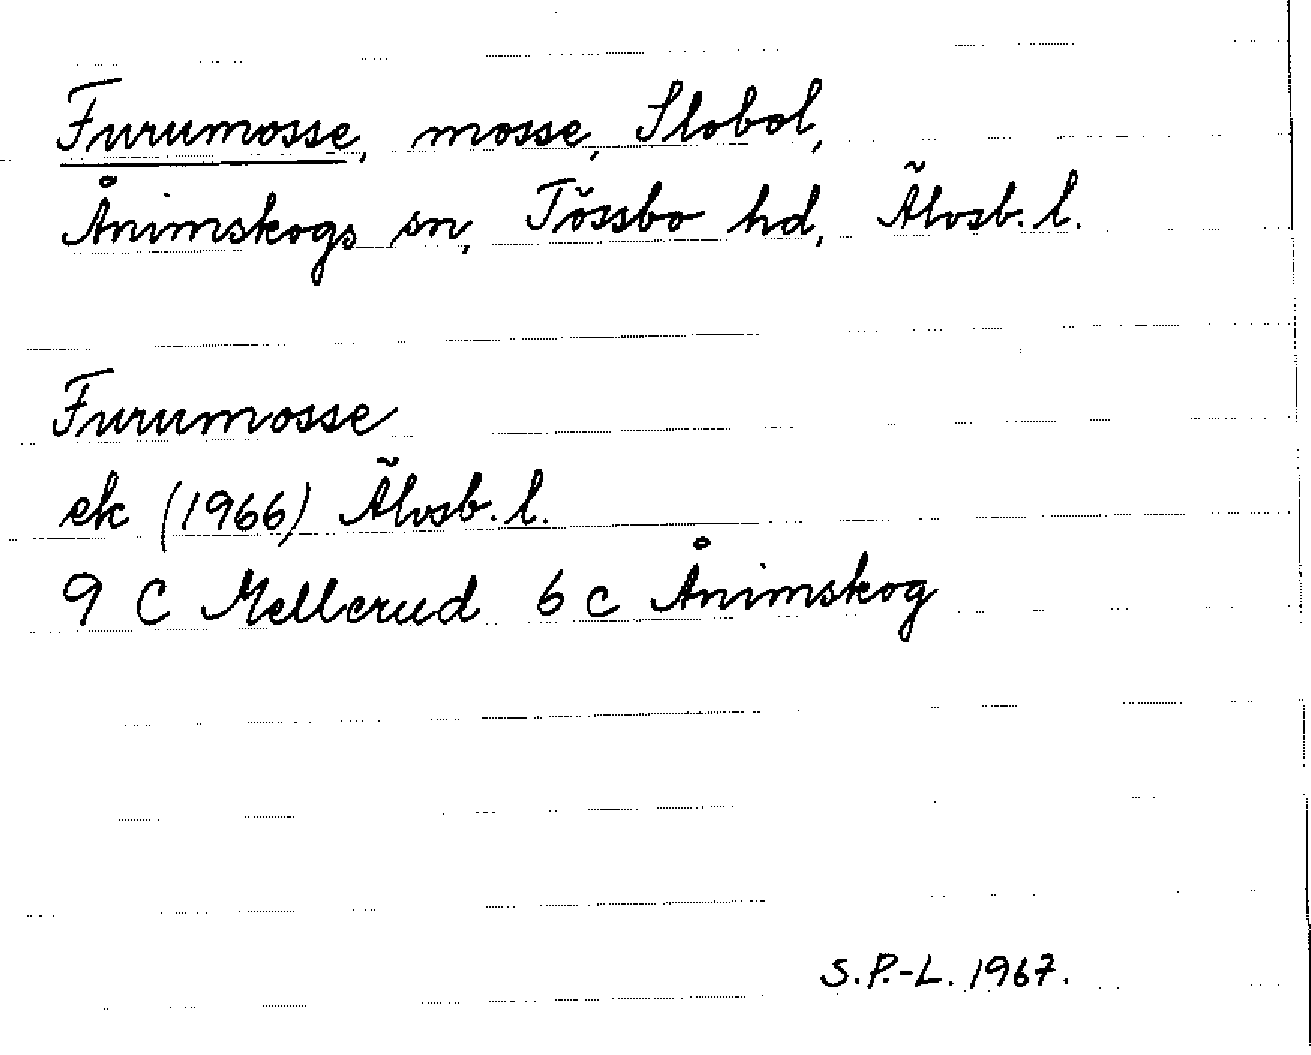 Furumosse, mosse, Slobol,
Ånimskogs sn, Tössbo hd, Älvsb. l.
Furumosse
ek (1966) Älvsb. l.
9 C Mellerud 6 c Ånimskog
S.P.-L. 1967.